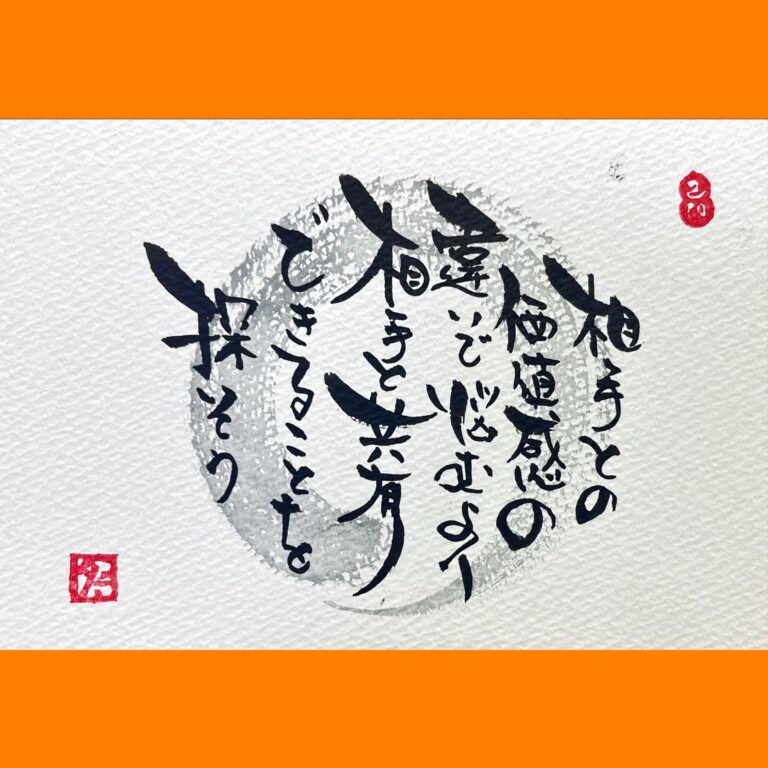 相手との
価値感の
違いで悩むより
相手と共有
できることを
探そう